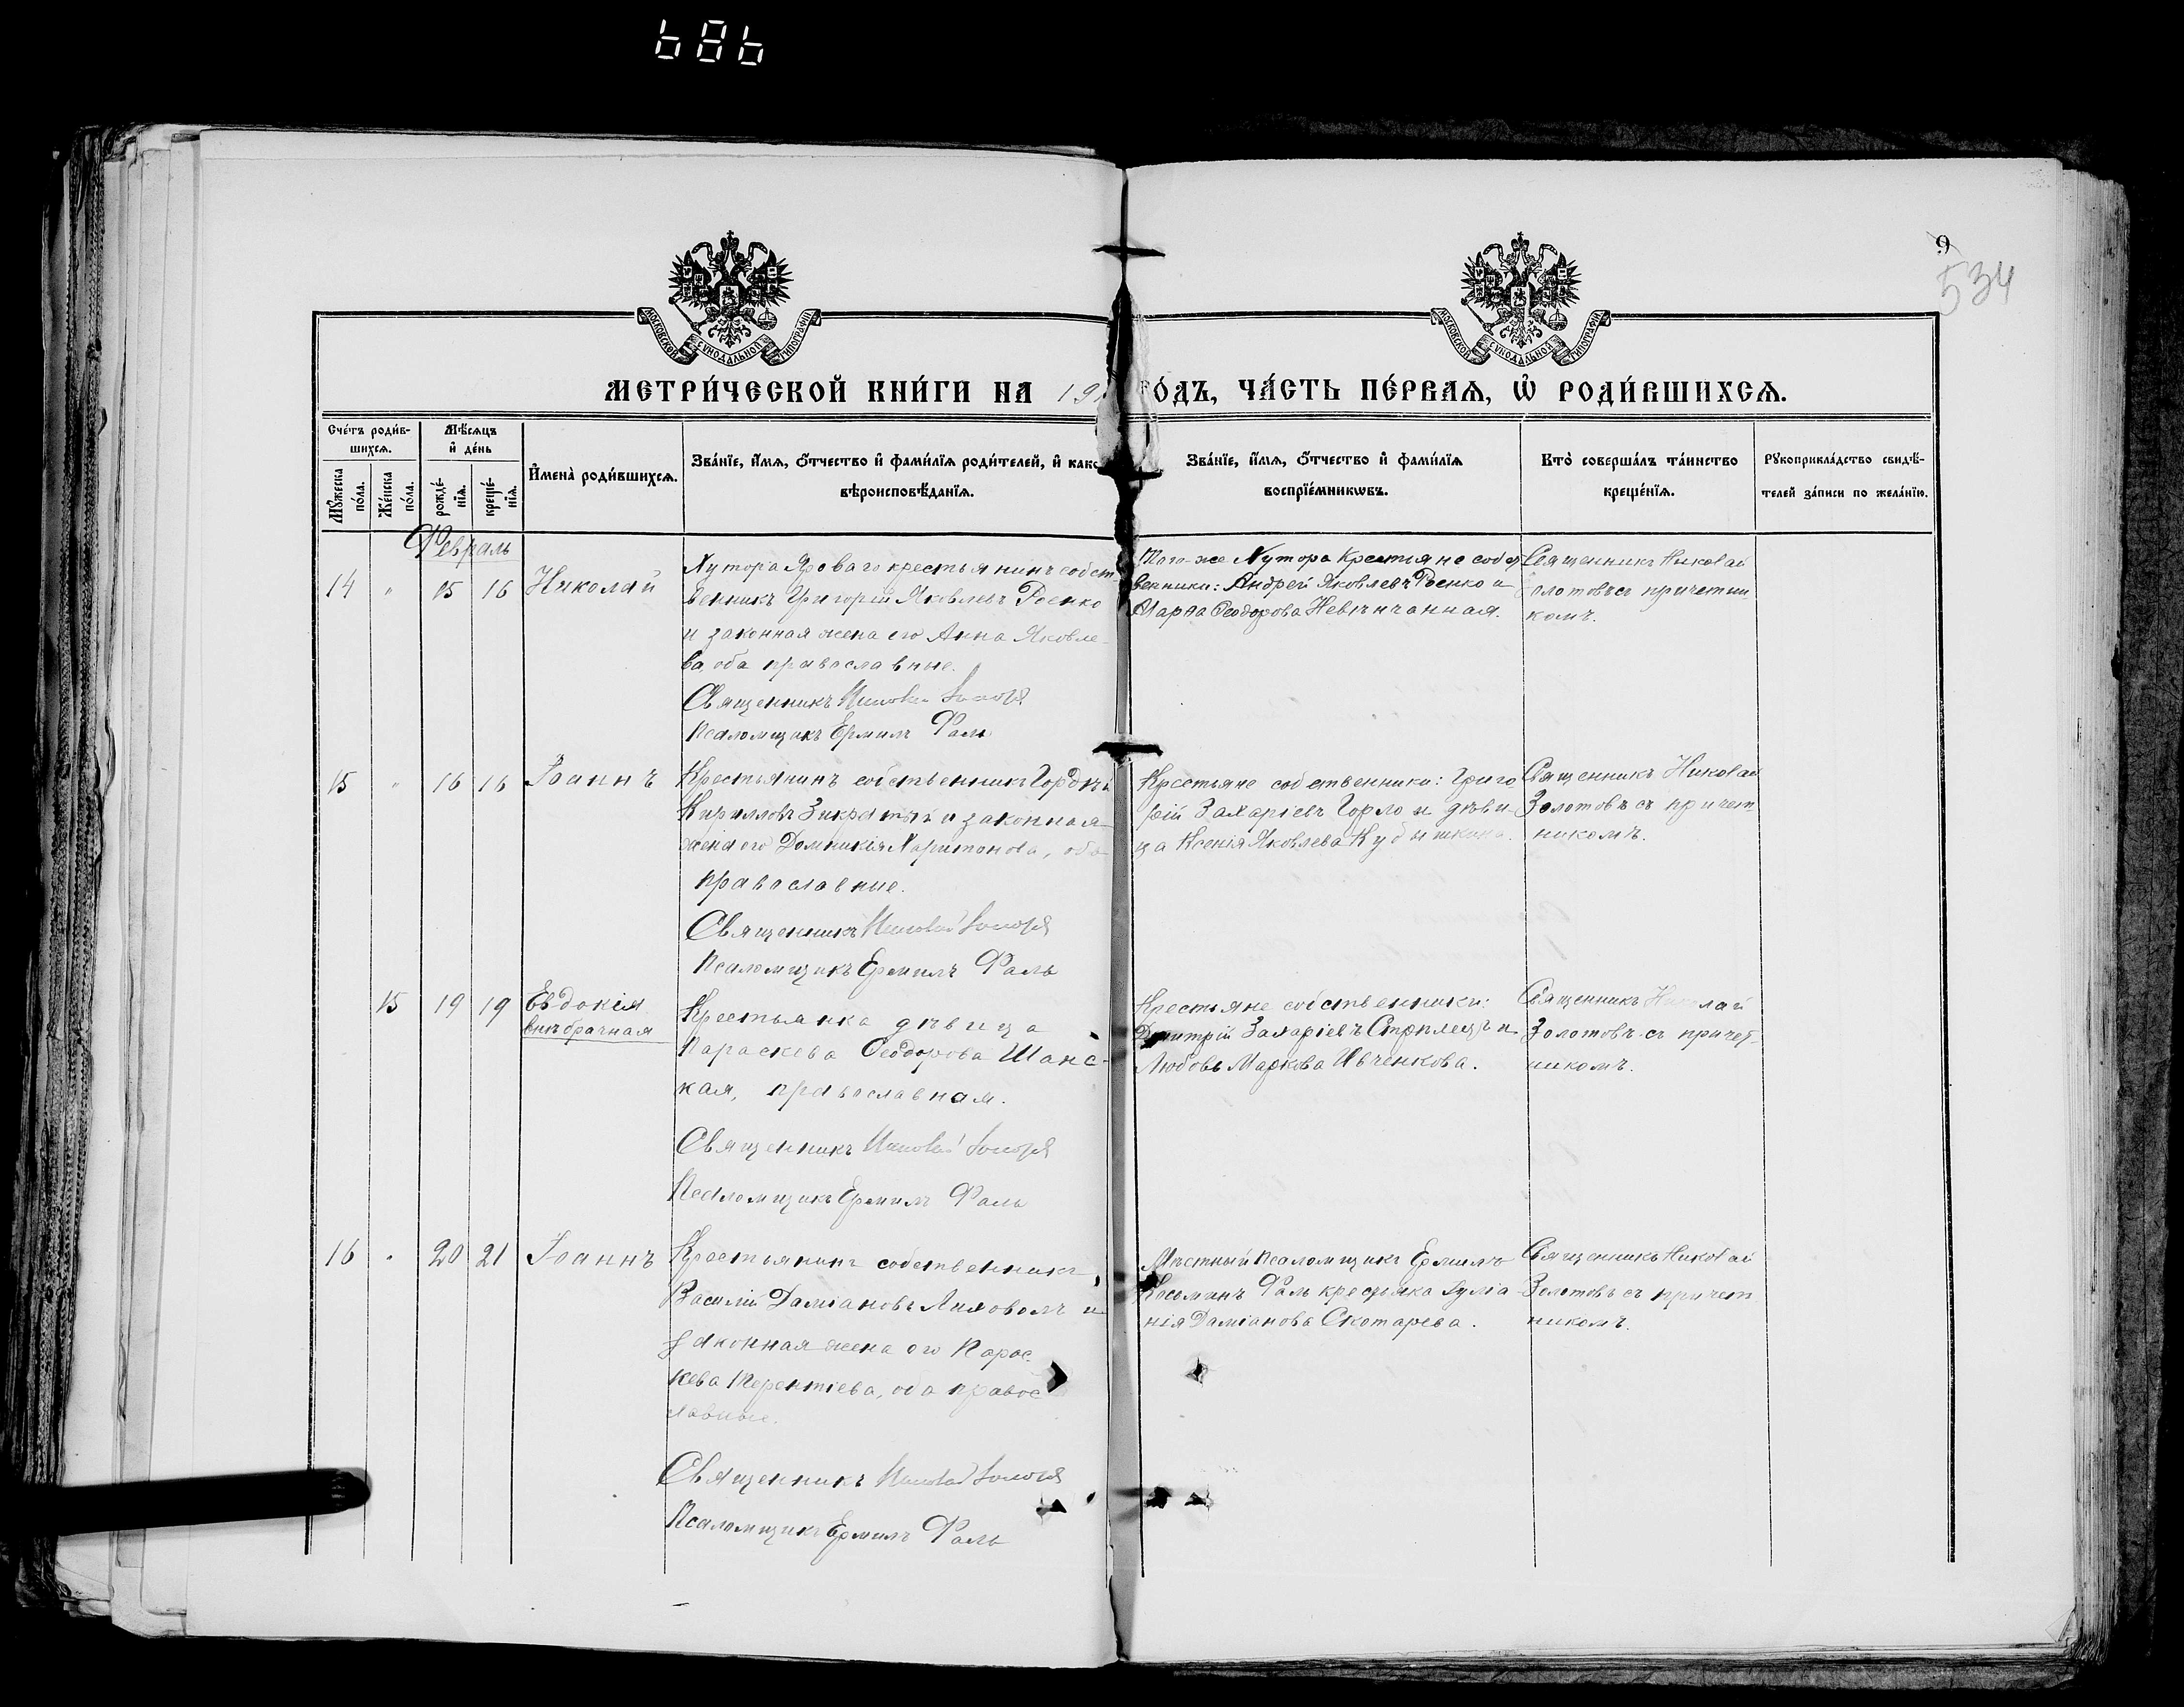 686
9
534
МОСКОВСКОЙ СѴНОДАЛЬНОЙ ТИПОГРАФІИ
МОСКОВСКОЙ СѴНОДАЛЬНОЙ ТИПОГРАФІИ
МЕТРИ́ЧЕСКОЙ КНИ́ГИ НА 19 ГО́ДЪ, ЧА́СТЬ ПЕ́РВАѦ, Ѿ РОДИ́ВШИХСѦ.
Сче́тъ роди́в-
шихсѧ.
Мꙋ́жеска по́ла.
Же́нска по́ла.
Мѣ́сѧцъ
и҆ де́нь
рожде́-нїѧ.
креще́-нїѧ.
И҆мена̀ роди́вшихсѧ.
Зва́нїе, и҆́мѧ, ѻ҆́тчество и҆ фами́лїѧ роди́телей, и҆ како
вѣроисповѣ́данїѧ.
Зва́нїе, и҆́мѧ, ѻ҆́тчество и҆ фами́лїѧ
воспрїе́мникѡвъ.
Кто̀ соверша́лъ та́инство
креще́нїѧ.
Рꙋкоприкла́дство свидѣ́-
телей за́писи по жела́нїю.
Февраль
14 " 15 16 Николай
Хутора Яроваго крестьянинъ собст
венникъ Григорій Яковлевъ Роенко
и законная жена его Анна Яковле-
ва, оба православные.
Священникъ Николай Золотовъ
Псаломщикъ Ермилъ Фаль
Того-же Хутора Крестьяне собст
венники: Андрей Яковлевъ Роенко и
Марѳа Ѳеодорова Невѣнчанная.
Священникъ Николай
Золотовъ съ причетни
комъ.
15 " 16 16 Іоаннъ
Крестьянинъ собственникъ Гордѣй
Кирилловъ Зикратый и законная
жена его Домникія Харитонова, оба
православные.
Священникъ Николай Золотовъ
Псаломщикъ Ермилъ Фаль
Крестьяне собственники: Григо
рій Захаріевъ Горло и дѣви
ца Ксенія Яковлева Кубышкина.
Священникъ Николай
Золотовъ съ причет
никомъ.
15 19 19 Евдокія
внѣбрачная
Крестьянка дѣвица
Параскева Ѳеодорова Шанс-
кая, православная.
Священникъ Николай Золотовъ
Псаломщикъ Ермилъ Фаль
Крестьяне собственники:
Димитрій Захаріевъ Стрилецъ и
Любовь Маркова Ивченкова.
Священникъ Николай
Золотовъ съ причет-
никомъ.
16 " 20 21 Іоаннъ
Крестьянинъ собственникъ
Василій Даміановъ Лиховолъ и
законная жена его Парас-
кева Терентіева, оба правос
лавные.
Священникъ Николай Золотовъ
Псаломщикъ Ермилъ Фаль
Мѣстный Псаломщикъ Ермилъ
Косьминъ Фаль крестьянка Іуліа-
нія Даміанова Скотарева.
Священникъ Николай
Золотовъ съ причет
никомъ.